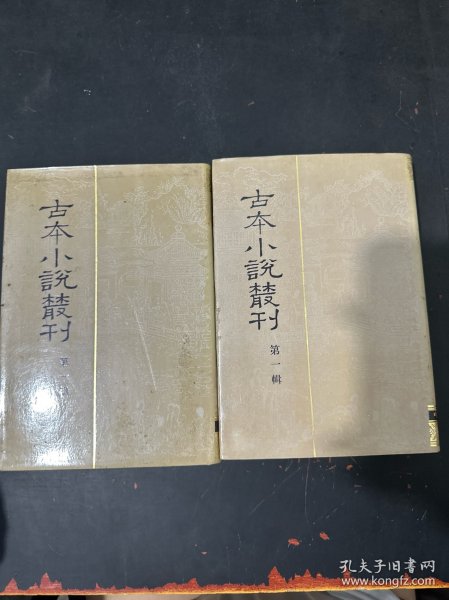 古本小說叢刊
第
古本小說叢刊
第一輯
孔夫子旧书网
www.kongfz.com